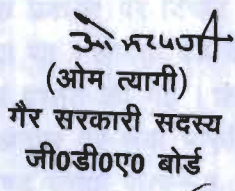 (ओम त्यागी)
गैर सरकारी सदस्य
जी0डी0ए0 बोर्ड